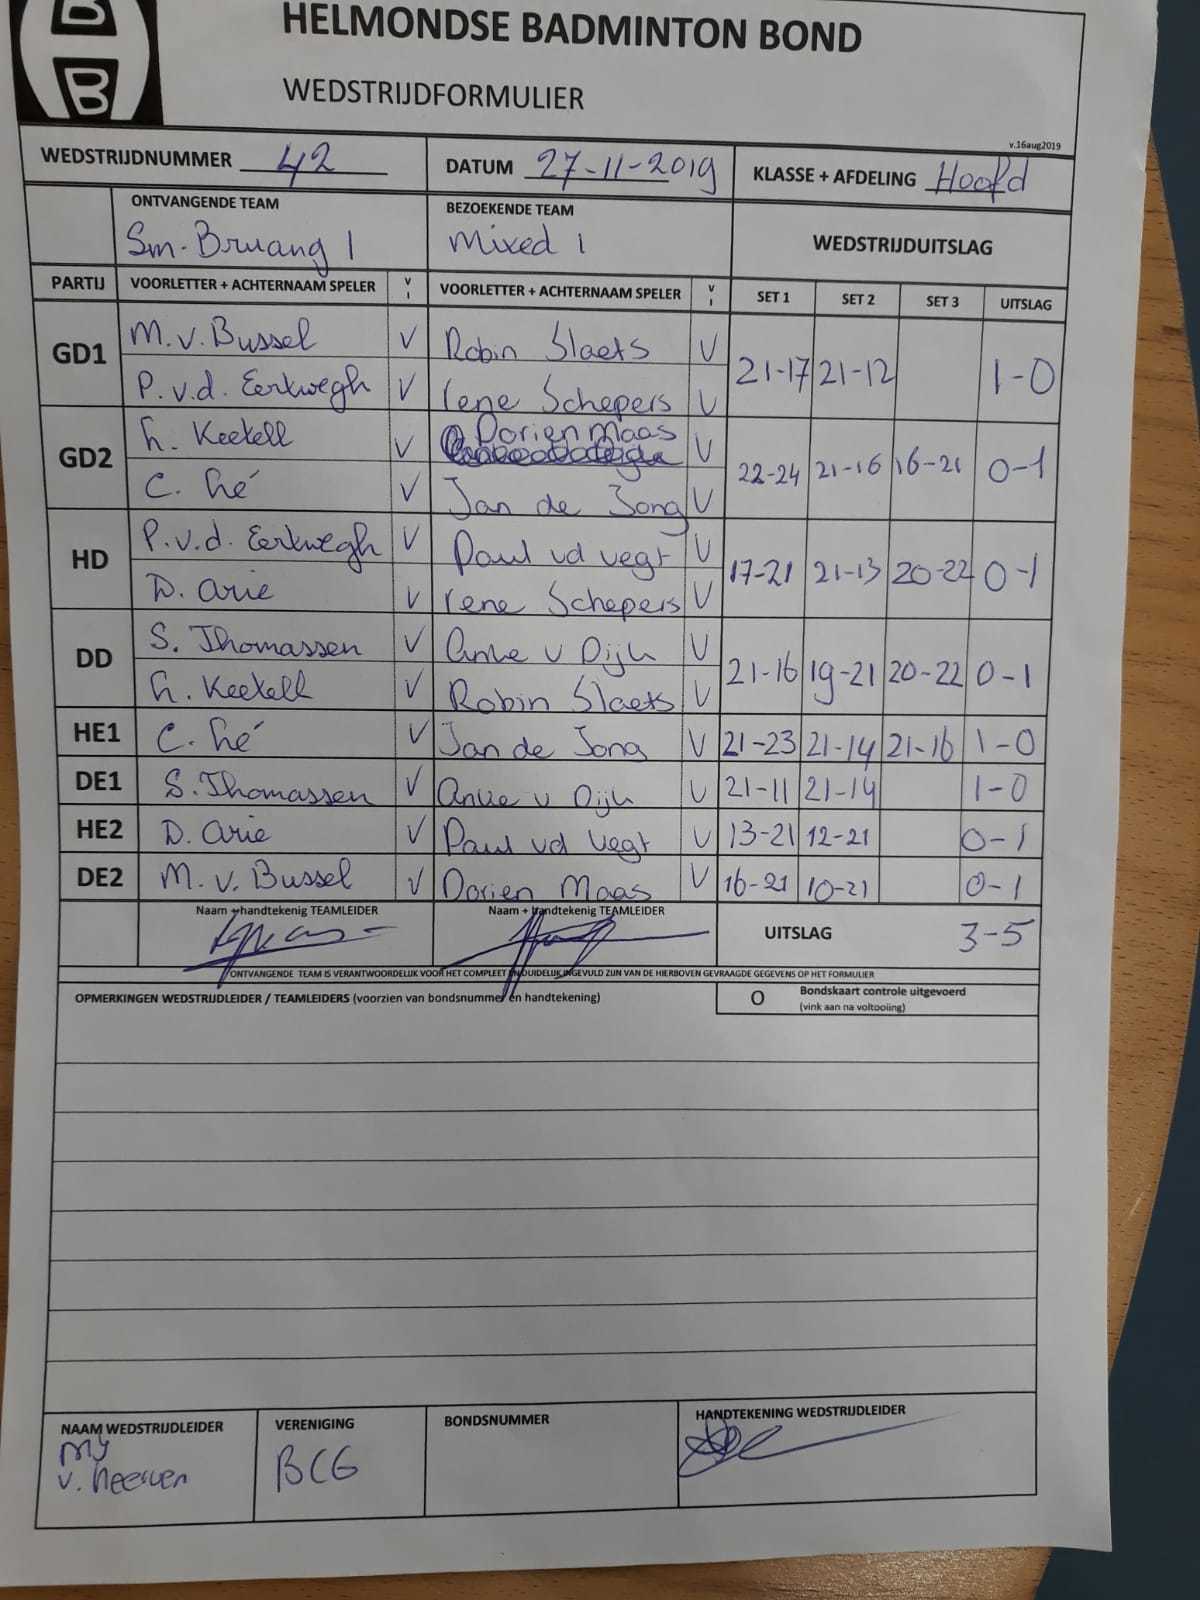 B
B
HELMONDSE BADMINTON BOND
WEDSTRIJDFORMULIER
v.16aug2019
WEDSTRIJDNUMMER 42 DATUM 27-11-2019 KLASSE + AFDELING Hoofd
ONTVANGENDE TEAM BEZOEKENDE TEAM WEDSTRIJDUITSLAG
Sm-Bruang 1 Mixed 1
PARTIJ VOORLETTER + ACHTERNAAM SPELER V I VOORLETTER + ACHTERNAAM SPELER V I SET 1 SET 2 SET 3 UITSLAG
GD1 M. v. Bussel V Robin Slaets V 21-17 21-12 1-0
P. v.d. Eerkwegh V rene Schepers V
GD2 h. Keetell V Dorien Maas V 22-24 21-16 16-21 0-1
C. hé V Jan de Jong V
HD P. v.d. Eerkwegh V Paul vd vegt V 17-21 21-13 20-22 0-1
D. Arie V rene Schepers V
DD S. Thomassen V Anke v Dijk V 21-16 19-21 20-22 0-1
h. Keetell V Robin Slaets V
HE1 C. hé V Jan de Jong V 21-23 21-14 21-16 1-0
DE1 S. Thomassen V Anke v Dijk V 21-11 21-14 1-0
HE2 D. Arie V Paul vd Vegt V 13-21 12-21 0-1
DE2 M. v. Bussel V Dorien Maas V 16-21 10-21 0-1
Naam + handtekenig TEAMLEIDER Naam + handtekenig TEAMLEIDER UITSLAG 3-5
ONTVANGENDE TEAM IS VERANTWOORDELIJK VOOR HET COMPLEET EN DUIDELIJK INGEVULD ZIJN VAN DE HIERBOVEN GEVRAAGDE GEGEVENS OP HET FORMULIER
OPMERKINGEN WEDSTRIJDLEIDER / TEAMLEIDERS (voorzien van bondsnummer en handtekening) O Bondskaart controle uitgevoerd
(vink aan na voltooiing)
NAAM WEDSTRIJDLEIDER VERENIGING BONDSNUMMER HANDTEKENING WEDSTRIJDLEIDER
My BCG
v. heerven